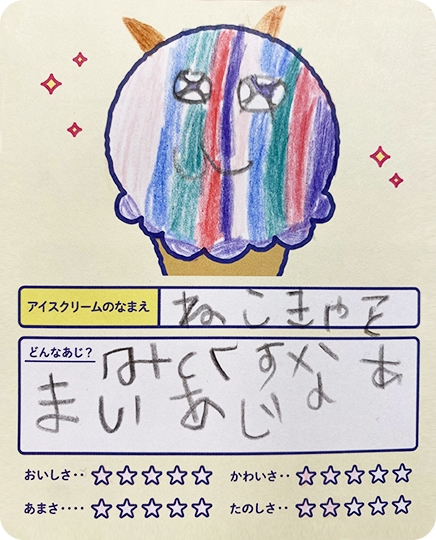 アイスクリームのなまえ
ねこきゃと
どんなあじ?
あ
まいあじ
おいしさ‥ ☆☆☆☆☆ かわいさ‥ ☆☆☆☆☆
あまさ‥‥ ☆☆☆☆☆ たのしさ‥ ☆☆☆☆☆